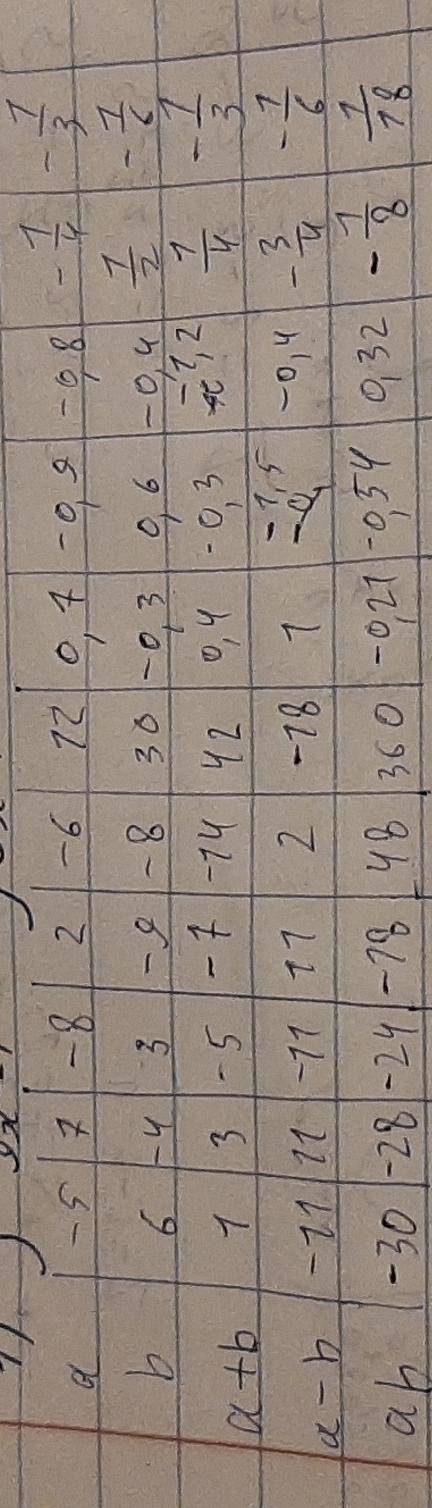 a -5 7 -8 2 -6 12 0,7 -0,9 -0,8 -1/4 -1/3
b 6 -4 3 -9 -8 30 -0,3 0,6 -0,4 1/2 -1/6
a+b 1 3 -5 -7 -14 42 0,4 -0,3 -1,2 1/4 -1/3
a-b -11 11 -11 11 2 -18 1 -1,5 -0,4 -3/4 -1/6
ab -30 -28 -24 -18 48 360 -0,21 -0,54 0,32 -1/8 1/18